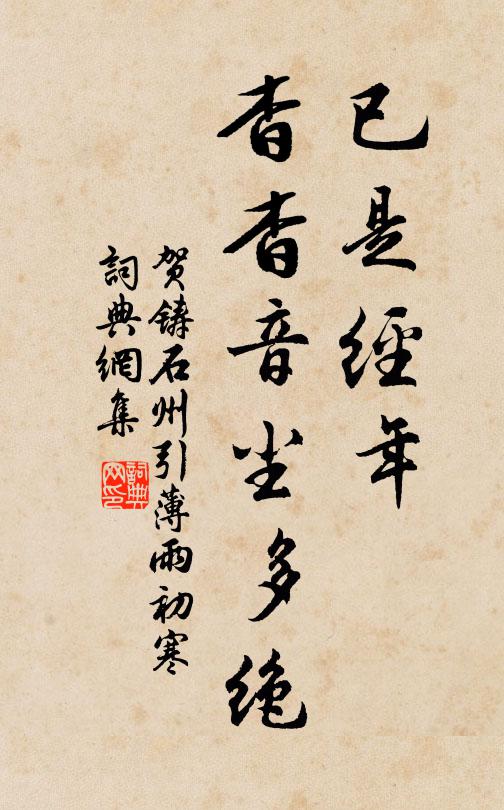 已是經年
杳杳音尘多绝
贺鑄石州引薄雨初寒
詞典網集
詞典网印